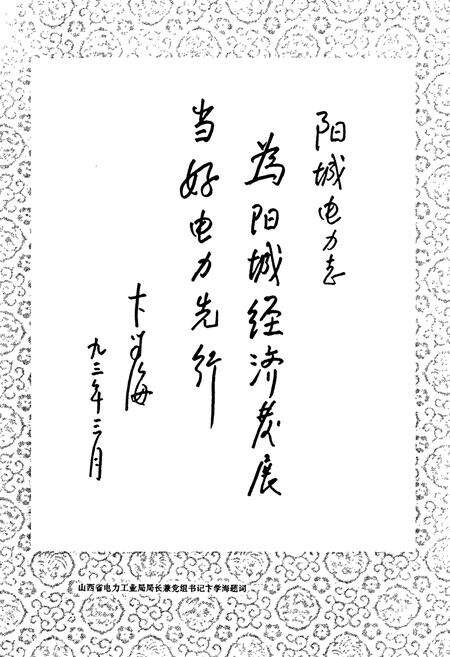 阳城电力志
为阳城经济发展
当好电力先行
卞学海
九三年三月
山西省电力工业局局长兼党组书记卞学海题词